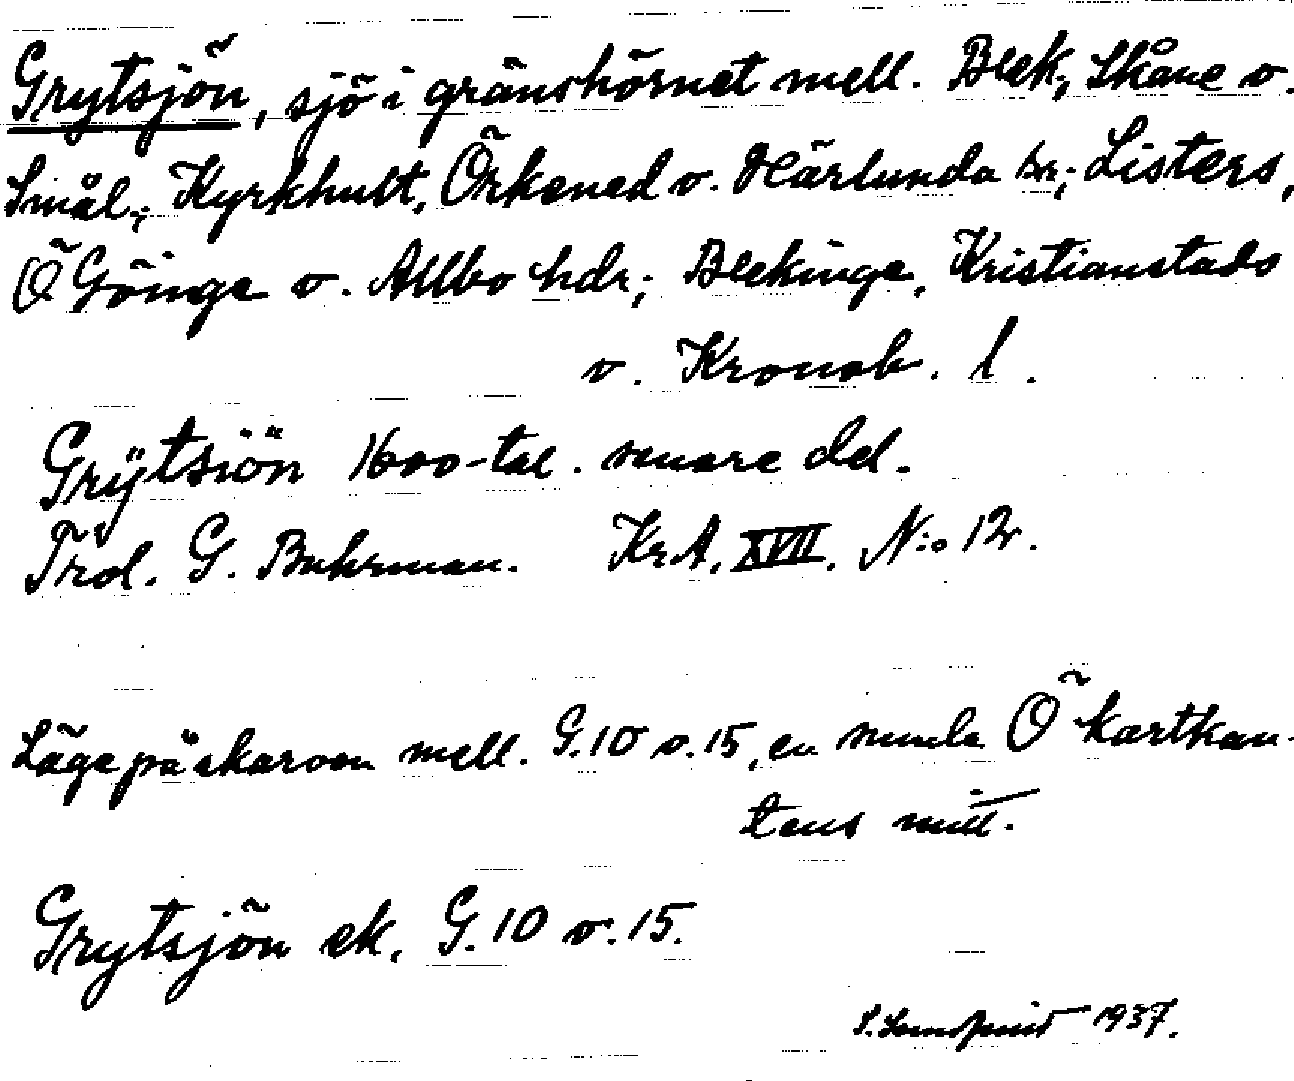 Grytsjön, sjö i gränshörnet mell. Blek., Skåne o.
Smål.; Kyrkhult, Örkened o. Härlunda sr; Listers,
Ö Göinge o. Allbo hdr; Blekinge, Kristianstads
o. Kronob. l.
Grÿtsiön 1600-tal. senare del.
Trol. G. Buhrman. KrA. XVII. N:o 12.
Läge på skarven mell. G. 10 o. 15, en smula Ö kartkan-
tens mitt.
Grytsjön ek. G. 10 o. 15.
1937.